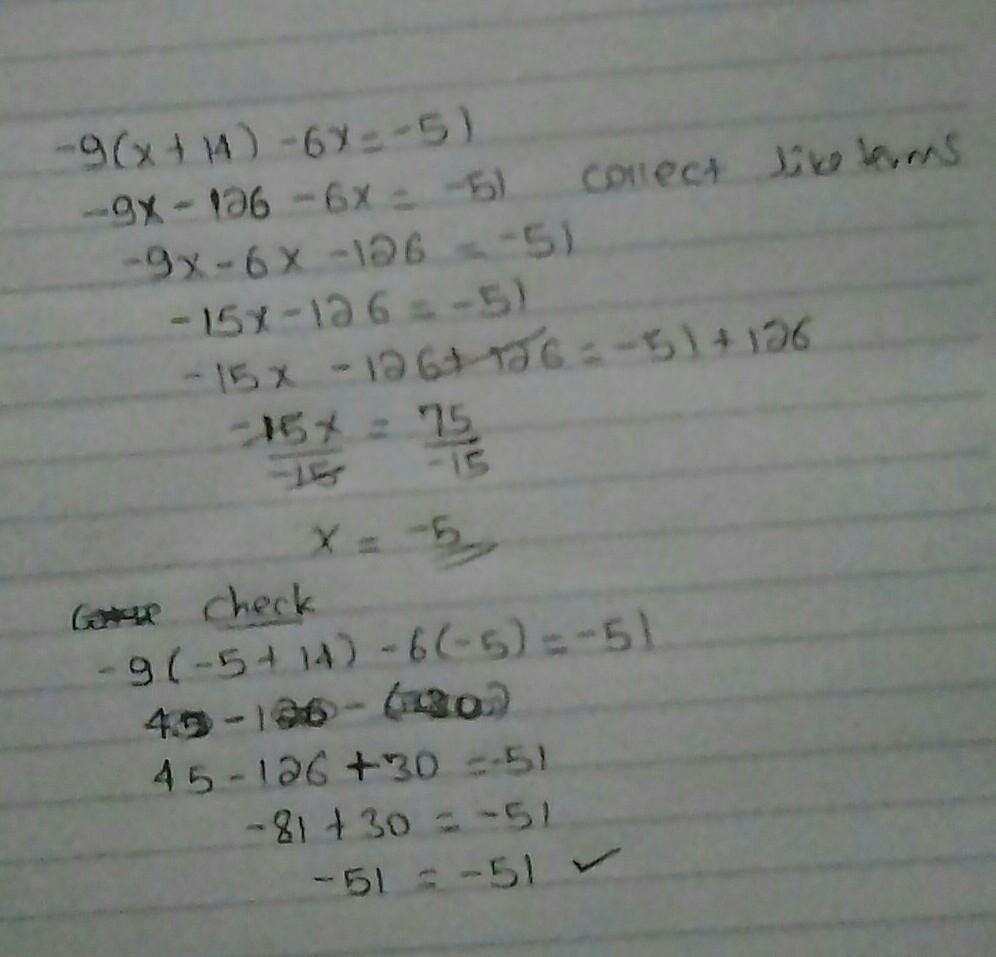 -9(x+14) -6x = -51
-9x - 126 - 6x = -51 collect like terms
-9x - 6x - 126 = -51
-15x - 126 = -51
-15x - 126 + 126 = -51 + 126
-15x = 75
-15 -15
x = -5
check
-9(-5+14) - 6(-5) = -51
45 - 126 + 30 = -51
-81 + 30 = -51
-51 = -51 ✓